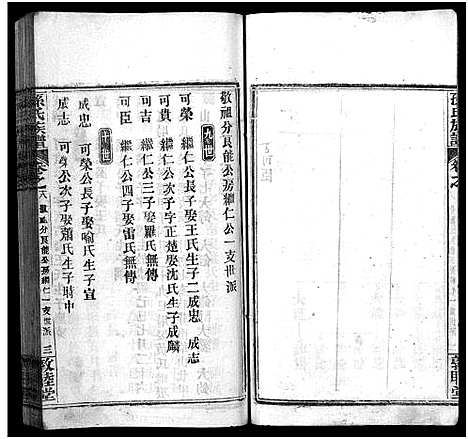 孫氏族譜
卷之
敦睦堂
敬祖分良能公房繼仁公一支世派
九世
可榮 繼仁公長子娶王氏生子二成忠 成志
可貴 繼仁公次子字正楚娶沈氏生子成麟
可吉 繼仁公三子娶羅氏無傳
可臣 繼仁公四子娶雷氏無傳
十世
成忠 可榮公長子娶喻氏生子宜
成志 可榮公次子娶蕭氏生子時中
孫氏族譜
卷之六 敬祖分良能公房繼仁一支世派
三 敦睦堂